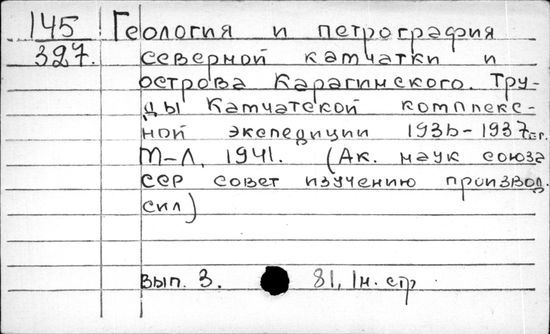 145 Геология и петрография
327. северной камчатки и
острова Карагинского. Тру-
ды Камчатской комплекс-
ной экспедиции 1936-1937гг.
М-Л, 1941. (Ак. наук союза
ССР совет изучению производ.
сил)
Вып. 3. 81, 1н. стр